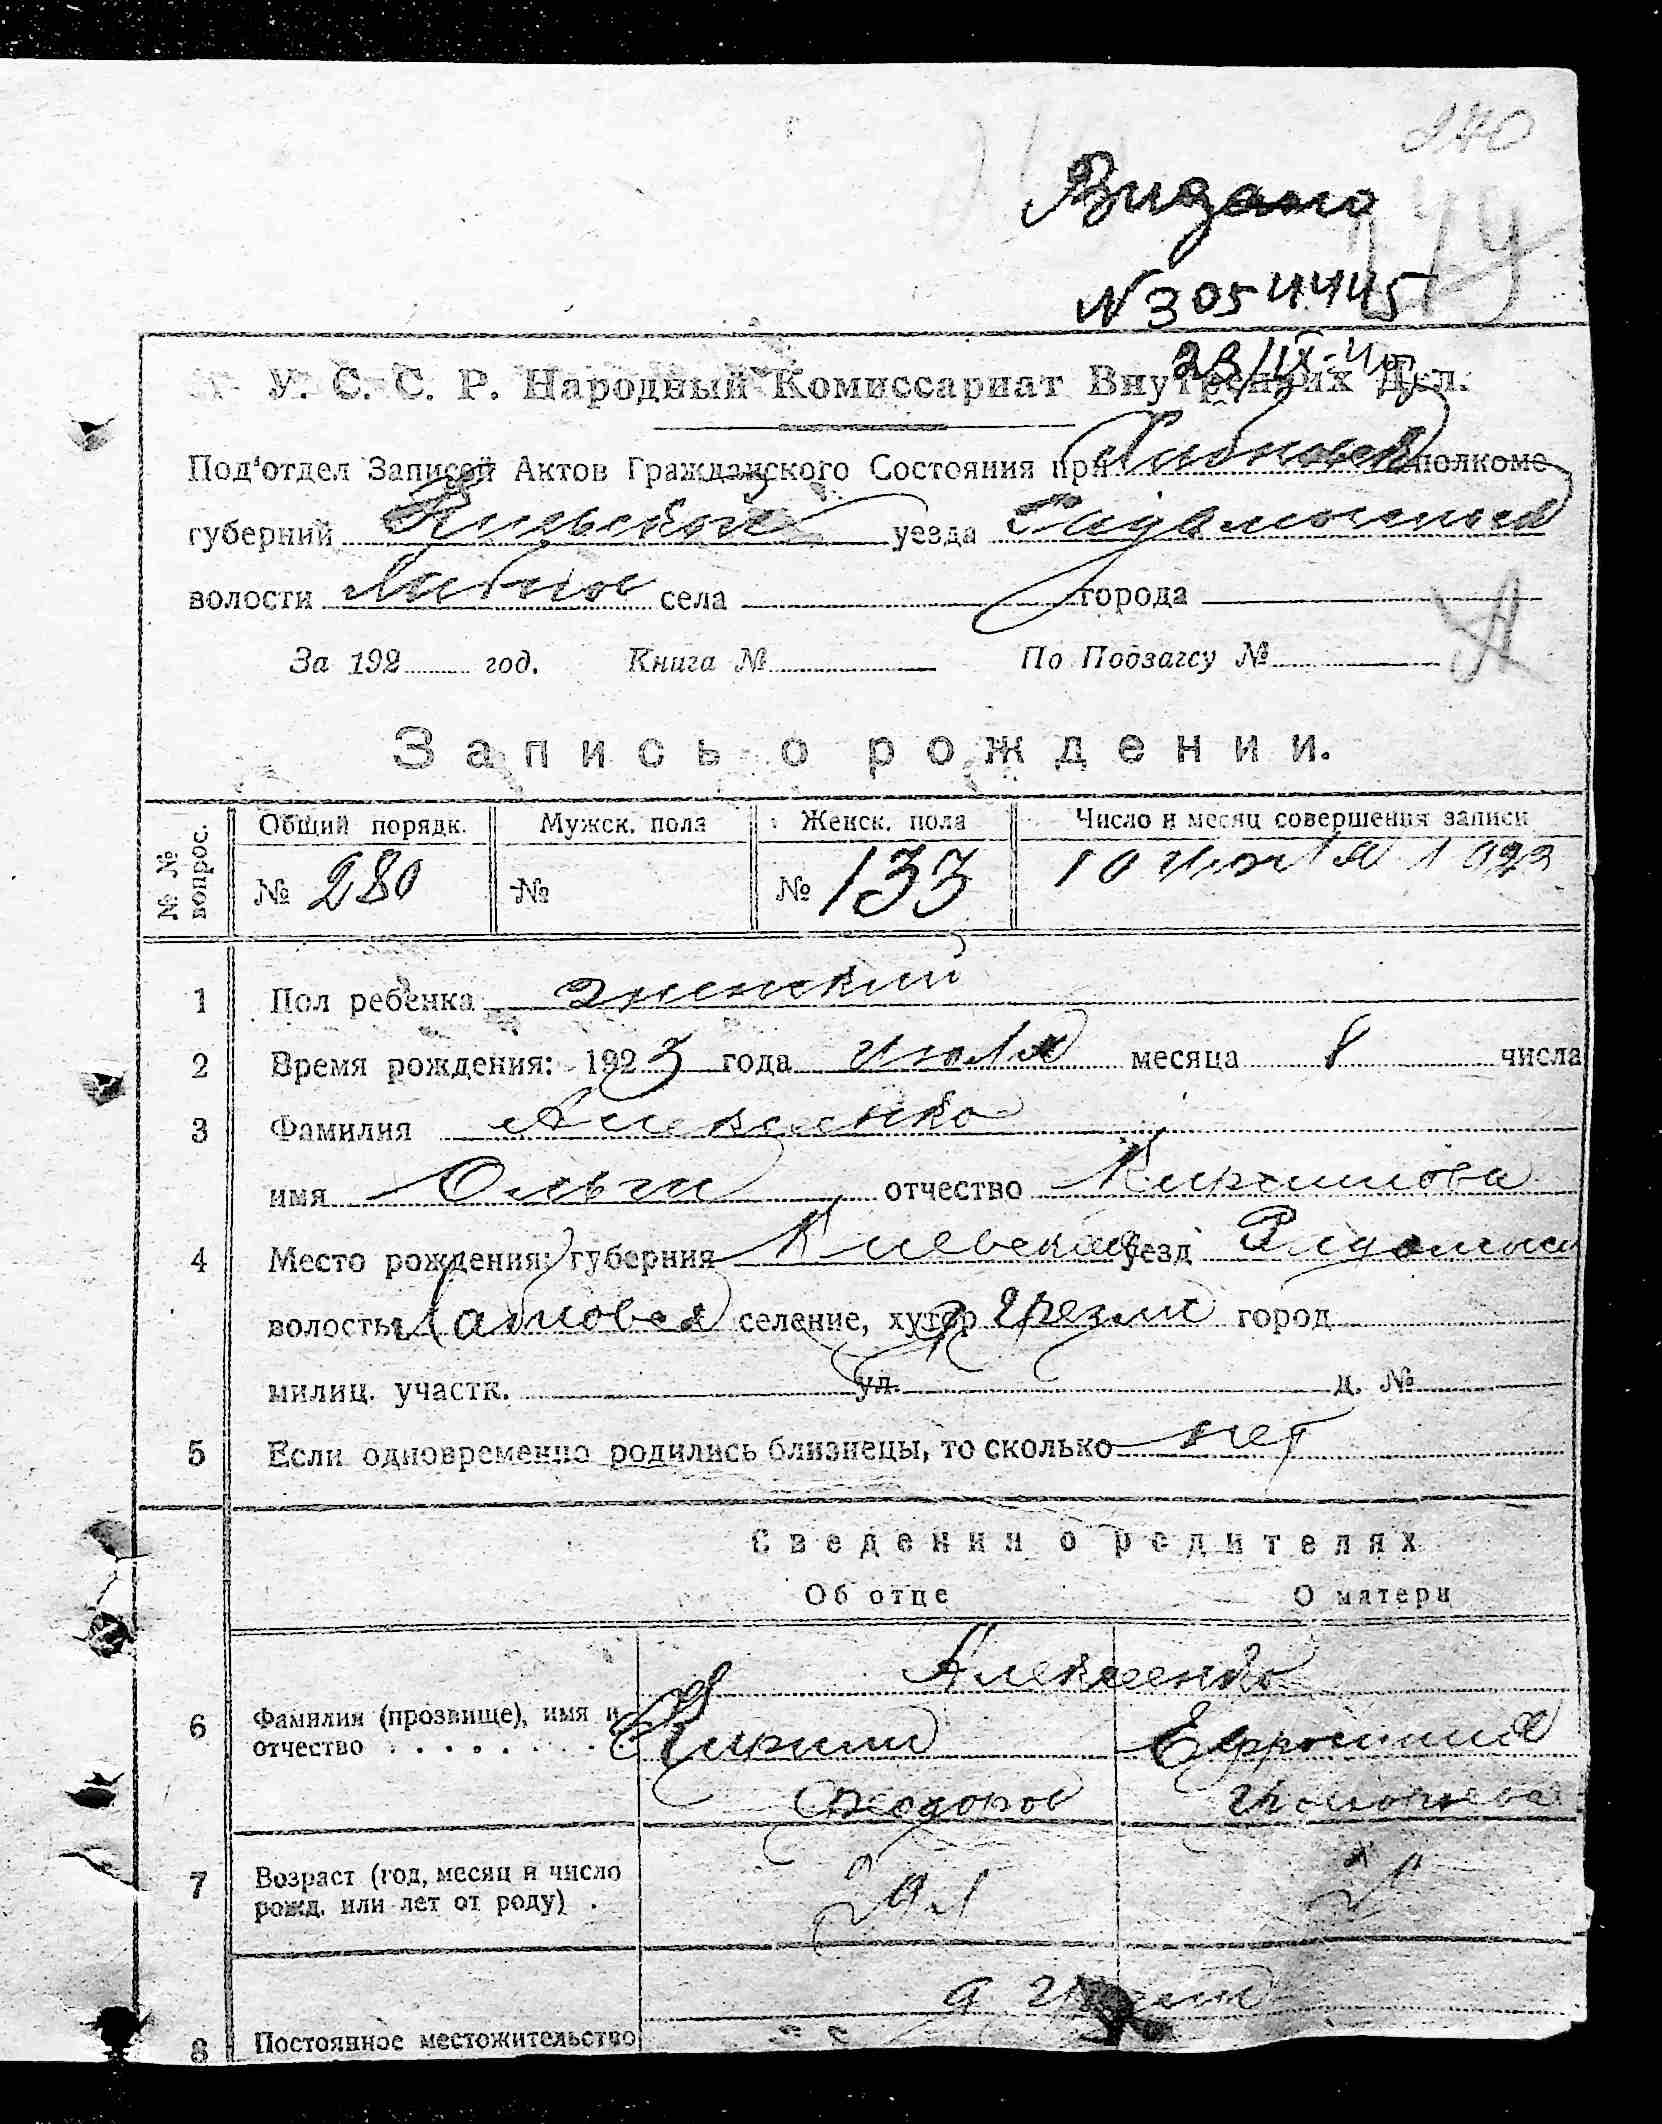 240
Видано
144
N 3054445
23/IX-45
У. С. С. Р. Народный Комиссариат Внутренних Дел.
Под'отдел Записей Актов Гражданского Состояния при полкоме
губерний Киевской уезда
волости села города
За 192 год. Книга № По Подзагсу №
А
Запись о рождении.
№ № вопрос. Общий порядк. Мужск. пола Женск. пола Число и месяц совершения записи
№ 280 № № 133 10 июля 1923
1 Пол ребенка женский
2 Время рождения: 1923 года июля месяца 8 числа
3 Фамилия Алексеенко
имя Ольги отчество Кирилова
4 Место рождения: губерния Киевская уезд Радомысл
волость Хабновск селение, хутор Грезли город
милиц. участк. ул. д. №
5 Если одновременно родились близнецы, то сколько нет
Сведения о родителях
Об отце О матери
Алексеенко
6 Фамилия (прозвище), имя и
отчество . . . . . . . . Кирилл Ефросиния
Феодоров
7 Возраст (год, месяц и число
рожд. или лет от роду) .
8 Постоянное местожительство